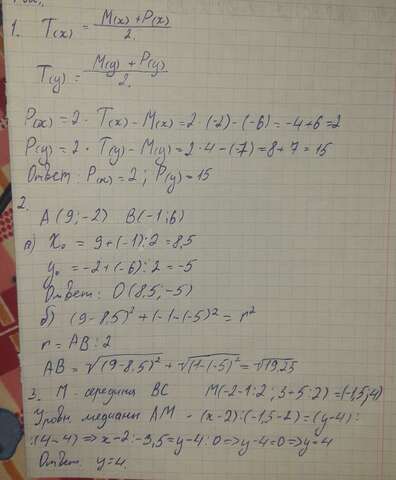 1. T(x) = M(x) + P(x) / 2.
T(y) = M(y) + P(y) / 2.
P(x) = 2 · T(x) - M(x) = 2 · (-2) - (-6) = -4+6=2
P(y) = 2 · T(y) - M(y) = 2 · 4 - (-7) = 8+7=15
Ответ: P(x) = 2; P(y) = 15
2.
A (9; -2) B(-1; 6)
а) X₀ = 9 + (-1) : 2 = 8,5
y₀ = -2 + (-6) : 2 = -5
Ответ: O (8,5; -5)
б) (9 - 8,5)² + (-1 - (-5)² = r²
r = AB : 2
AB = √(9-8,5)² + √(1-(-5)² = √19,25
3. M - середина BC M(-2-1:2; 3+5:2) = (-1,5; 4)
Уровн. медианы AM - (x-2):(-1,5-2) = (y-4):
:(4-4) => x-2:-3,5 = y-4:0 => y-4=0 => y=4
Ответ: y=4.